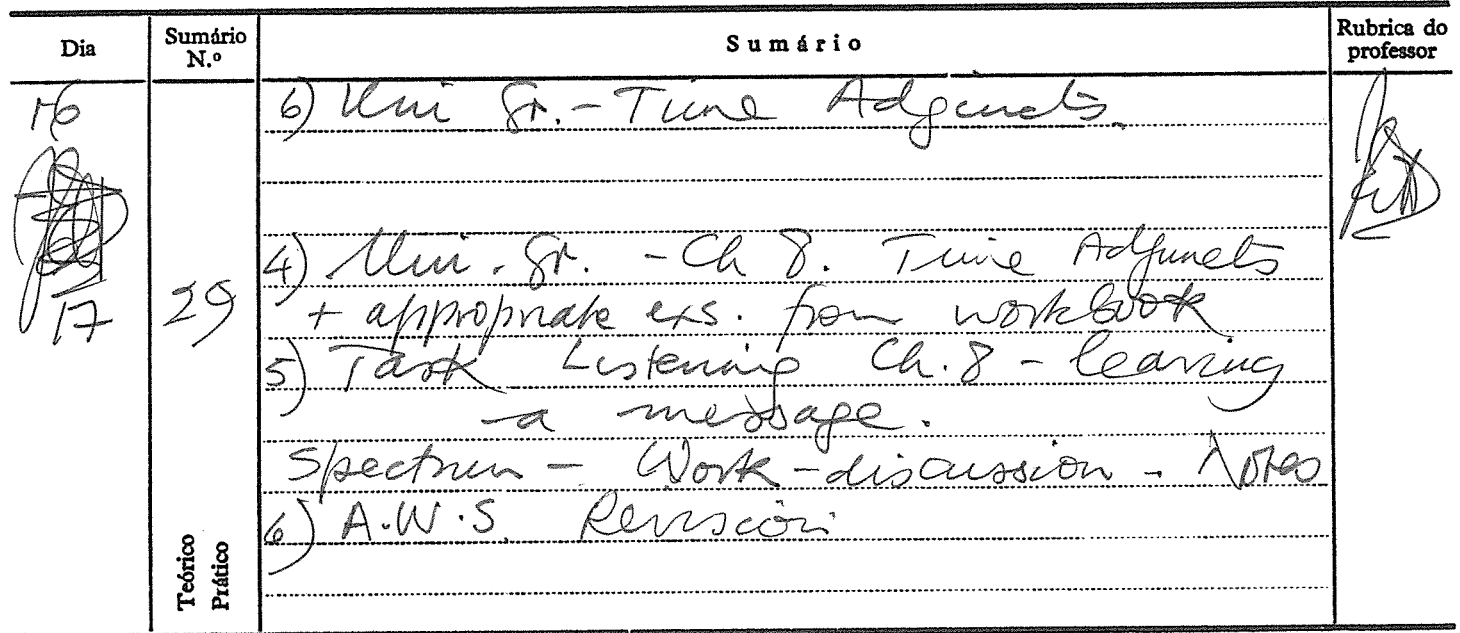 Dia
Sumário N.º
Sumário
Rubrica do professor
16
6) Uni Gr. - Time Adjuncts.
4) Uni. Gr. - Ch 8. Time Adjuncts
17
29
+ appropriate exs. from workbook
5) Task Listening Ch. 8 - leaving
a message.
Spectrum - Work - discussion - Notes
6) A.W.S. Revision
Teórico
Prático